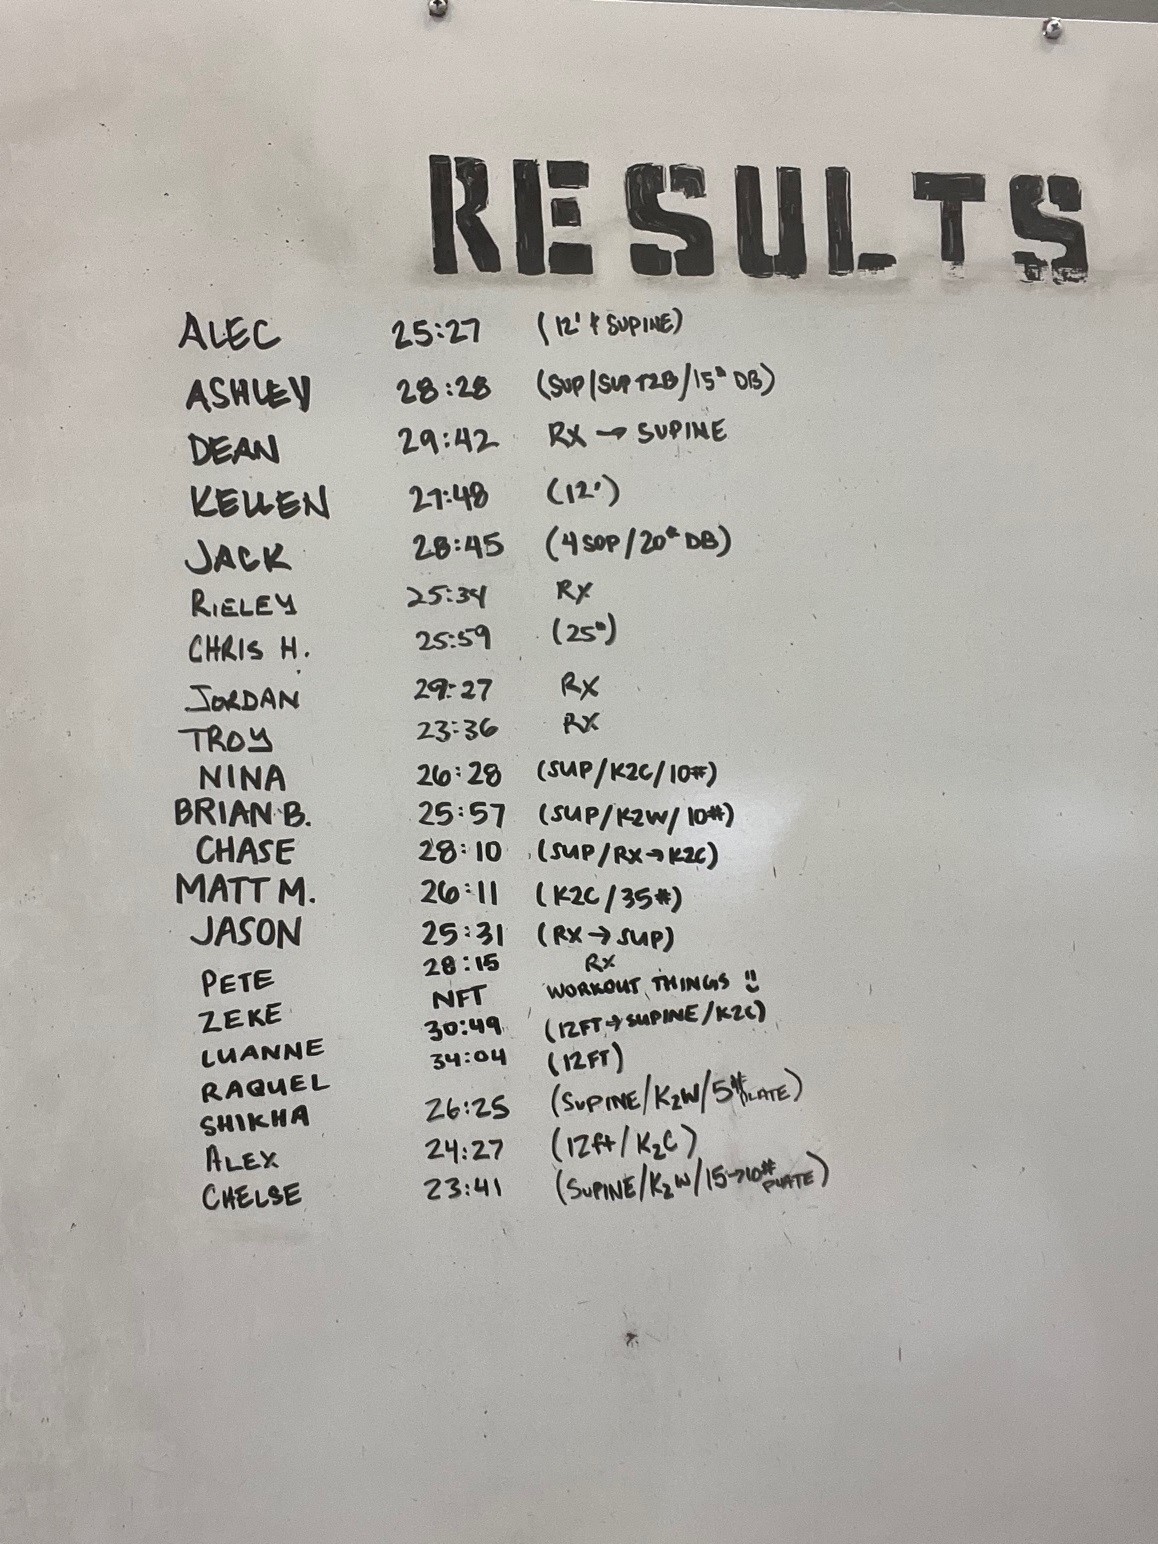 RESULTS
ALEC 25:27 (12' & SUPINE)
ASHLEY 28:28 (SUP/SUP T2B/15# DB)
DEAN 29:42 RX → SUPINE
KELLEN 27:48 (12')
JACK 28:45 (4 SUP/20# DB)
RIELEY 25:34 RX
CHRIS H. 25:59 (25#)
JORDAN 29:27 RX
TROY 23:36 RX
NINA 26:28 (SUP/K2C/10#)
BRIAN B. 25:57 (SUP/K2W/10#)
CHASE 28:10 (SUP/RX→K2C)
MATT M. 26:11 (K2C/35#)
JASON 25:31 (RX→SUP)
PETE 28:15 RX
ZEKE NFT WORKOUT THINGS
LUANNE 30:49 (12FT→SUPINE/K2C)
RAQUEL 34:04 (12FT)
SHIKHA 26:25 (SUPINE/K2W/5# PLATE)
ALEX 24:27 (12ft/K2C)
CHELSE 23:41 (SUPINE/K2W/15→10# PLATE)